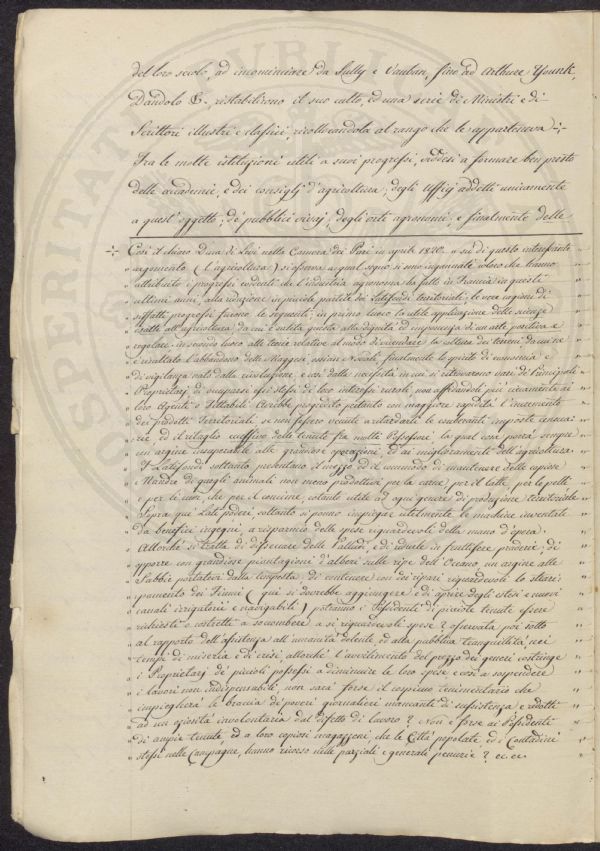 del loro secolo, ad incominciare da Sully e Vauban, fino ad Arthure Younk,
Dandolo &., ristabilirono il suo culto, ed una serie di Ministri e di
Scrittori illustri e classici, ricollocandola al rango che le apparteneva -:-
Fra le molte istituzioni utili a suoi progressi, viddersi a formare ben presto
delle accademie, e dei consiglj d'agricoltura; degli Uffizj addetti unicamente
a quest'oggetto; de' pubblici vivaj; degli orti agronomi; e finalmente delle
-:- Così il chiaro Duca di Levi nella Camera dei Pari in aprile 1820. „ sù di questo interessante
„ argomento (l'agricoltura) si osserva a qual segno si sono ingannati coloro che hanno
„ attribuito i progressi evidenti che l'industria agronoma ha fatto in Francia in questi
„ ultimi anni, alla riduzione in piccole partite dei Latifondi territoriali; le vere cagioni di
„ siffatti progressi furono le seguenti; in primo luogo la utile applicazione delle scienze
„ esatte all'agricoltura da cui è salita questa alla dignità ed importanza di un'arte positiva e
„ regolare, in secondo luogo alle teorie relative al modo di vicendare la coltura dei terreni da cui ne
„ è risultato l'abbandono delle Maggesi ossiano Novali, finalmente lo spirito di economia e
„ di vigilanza nato dalla rivoluzione, e così dalla necessità in cui si ritrovarono varj di Principali
„ Proprietarj di occuparsi essi stessi di loro interessi rurali, non affidandosi più ciecamente ai
„ loro Agenti o Fittabili. Avrebbe progredito pertanto con maggiore rapidità l'incremento
„ dei prodotti Territoriali, se non fossero venute a ritardarli le esuberanti imposte
„ ed il ritaglio eccessivo delle tenute fra molti Possessori, la qual cosa porrà sempre
„ un argine insuperabile alle grandiose operazioni, ed ai miglioramenti dell'agricoltura.
„ I Latifondi soltanto presentano il mezzo ed il commodo di mantenere delle copiose
„ Mandre di quegli animali non meno produttivi per la carne, per il latte, per le pelli
„ e per le lane, che per il concime, cotanto utile ad ogni genere di produzione territoriale
„ Sopra que' Lati poderi soltanto si ponno impiegare utilmente le machine inventate
„ da benefici ingegni, a risparmio delle spese riguardevoli della mano d'opera.
„ Allorchè si tratta di disseccare delle Paludi, e di ridurle in fruttifere praderie; di
„ opporre con grandiose piantagione d'alberi sulle ripe dell'Oceano un argine alle
„ Sabbie portatevi dalla tempesta; di contenere con dei ripari riguardevoli lo strari:
„ pamento dei Fiumi (qui si dovrebbe aggiungere e di aprire degli estesi e nuovi
„ canali irrigatorii e navigabili) potranno i Possidenti di piccole tenute essere
„ richiesti o costretti a soccombere a sì riguardevoli spese? osservata poi sotto
„ al rapporto dell'assistenza all'umanità dolente, ed alla pubblica tranquillità, nei
„ tempi di miseria e di crisi, allorchè l'avvilimento del prezzo dei generi costringe
„ i Proprietarj de' piccioli possessi a diminuire le loro spese e così a sospendere
„ i lavori non indispensabili non sarà forse il copioso che
„ impiegherà le braccia de' poveri giornalieri mancanti di sussistenza e ridotti
„ ad un'oziosità involontaria dal difetto di lavoro? Non è forse ai Possidenti
„ di ampie tenute ed a loro copiosi magazzeni, che le Città popolate ed i Contadini
„ stessi nelle Campagne, hanno ricorso nelle parziali e generali penurie? ec. ec.